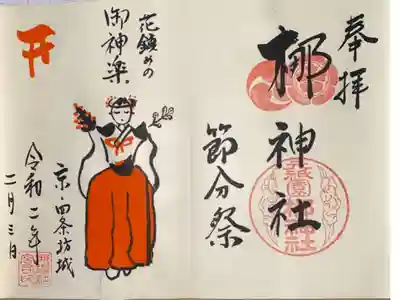 奉拝
梛神社
節分祭
花鎮めの
御神楽
京・四条坊城
令和二年
二月三日